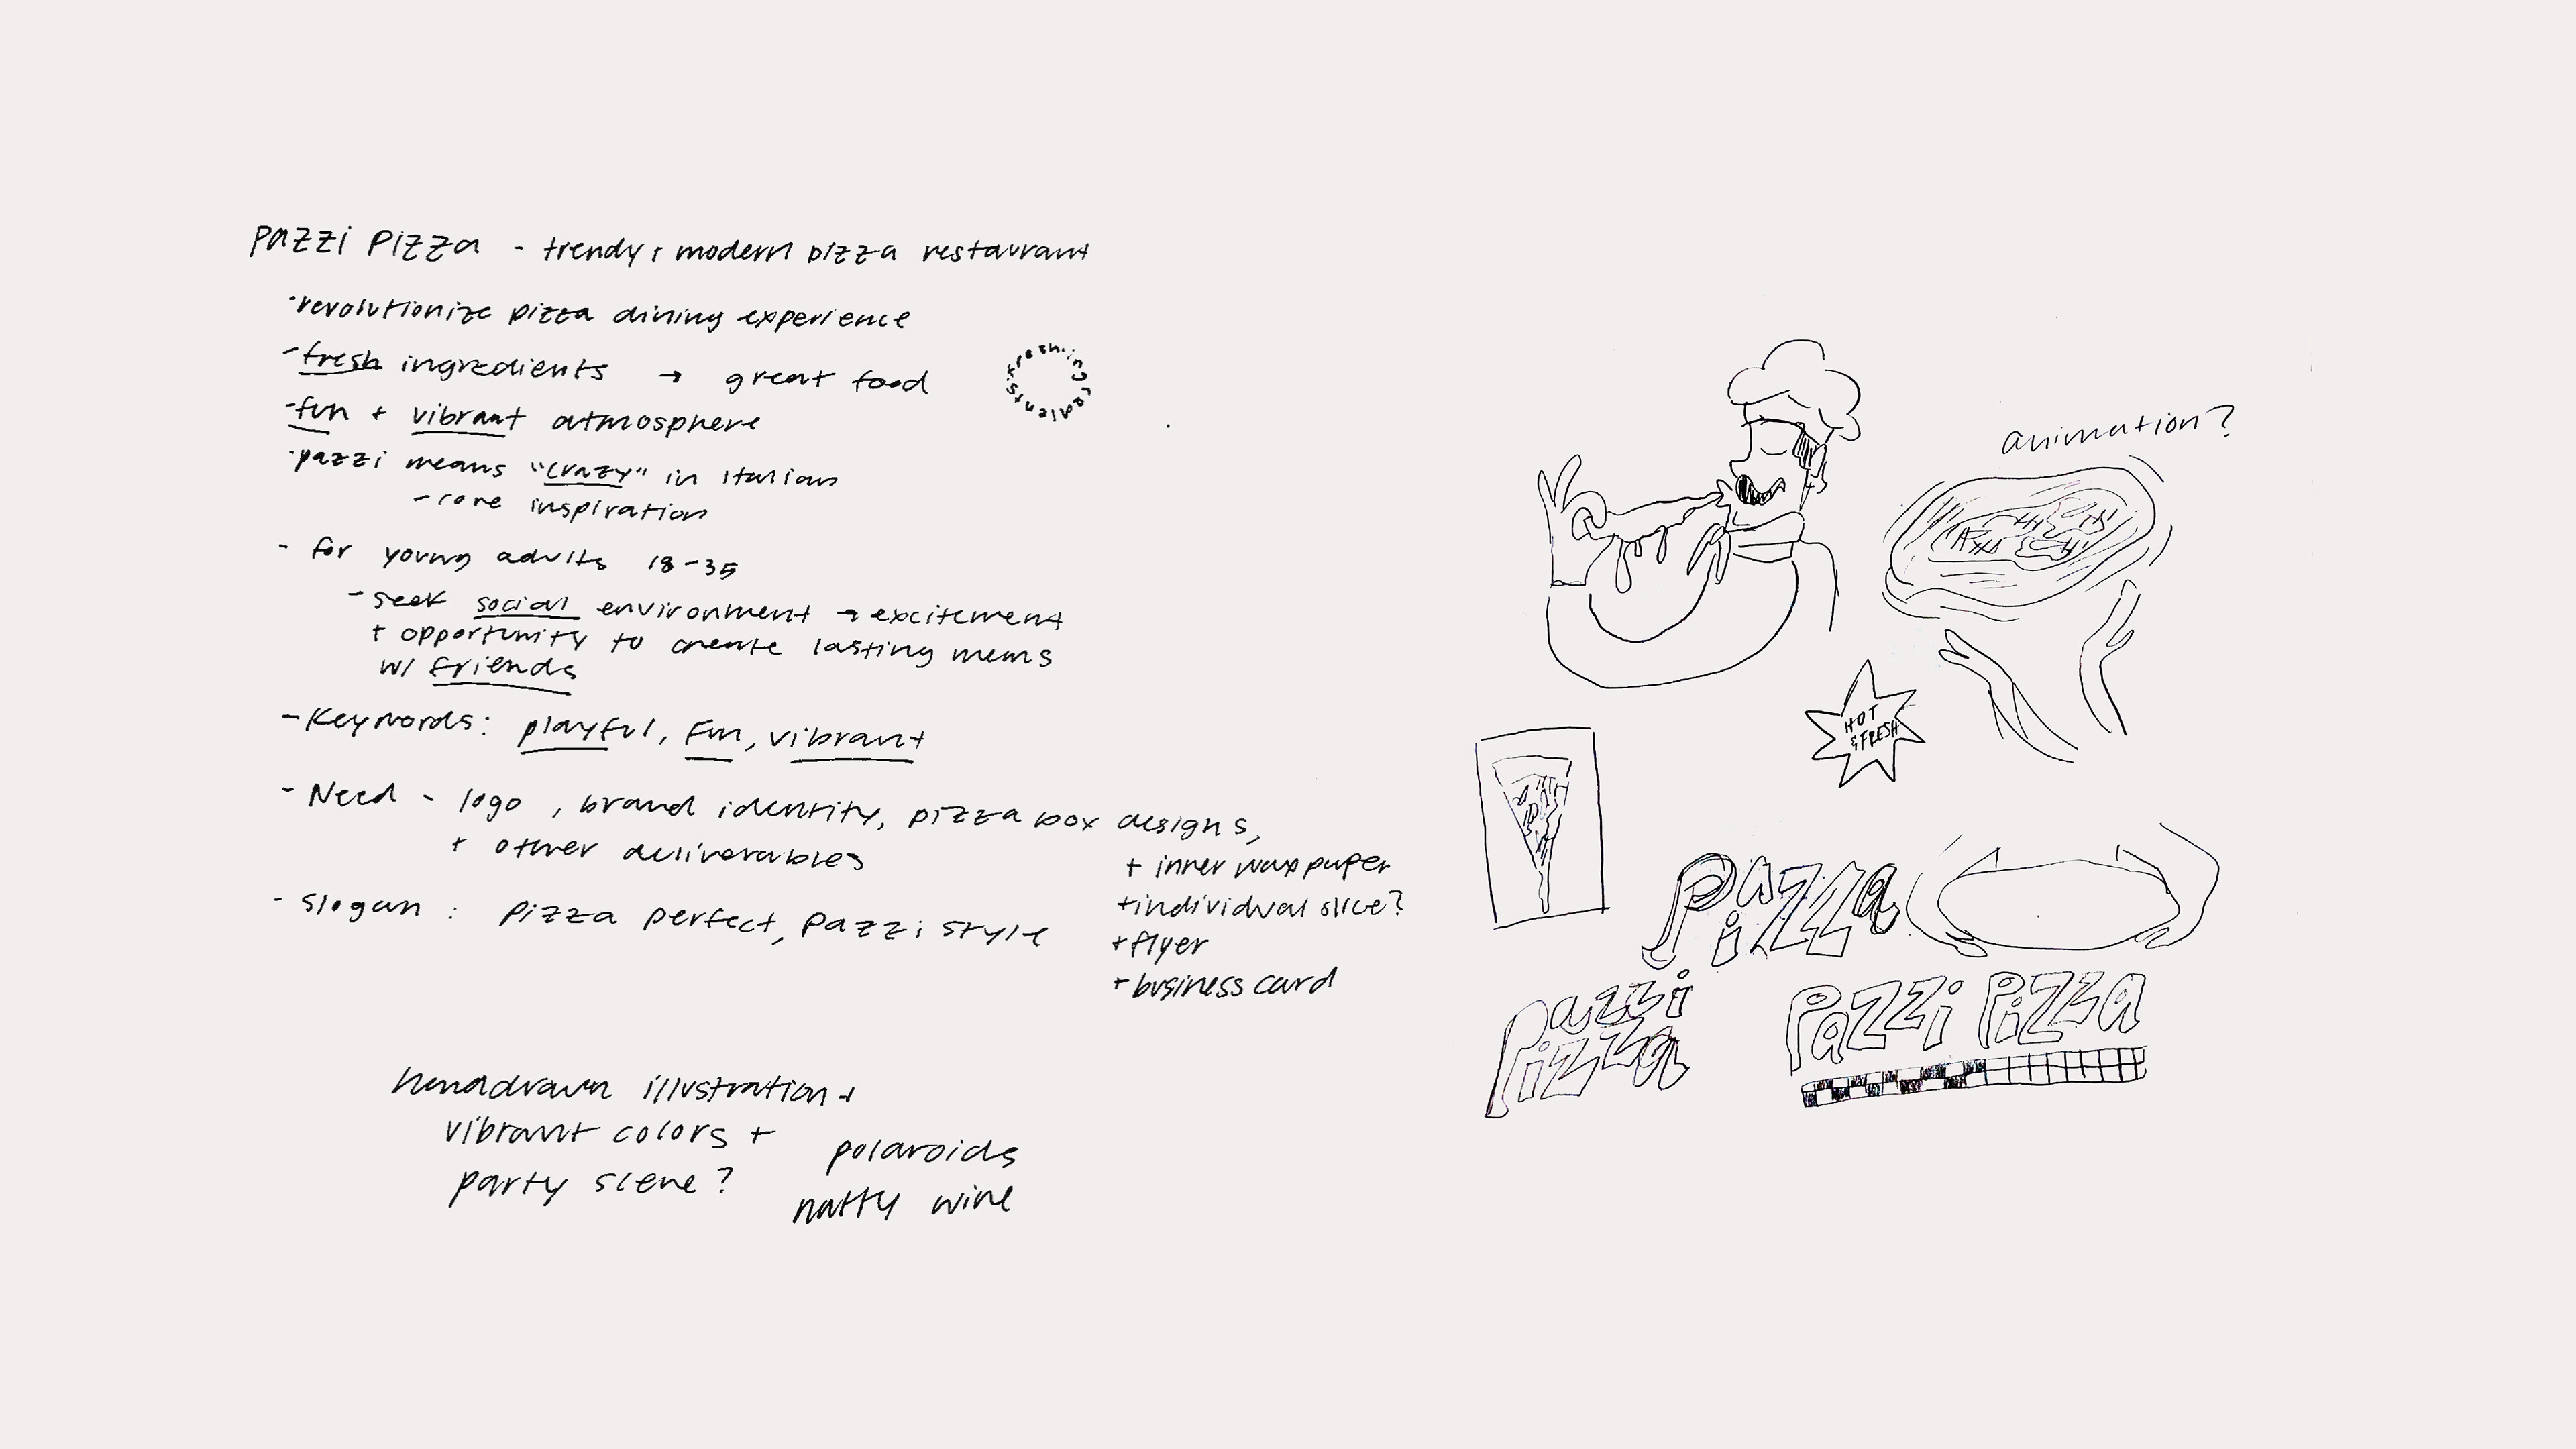 pazzi pizza - trendy + modern pizza restaurant
- revolutionize pizza dining experience
- fresh ingredients → great food
fresh ingredients
- fun + vibrant atmosphere
- pazzi means "crazy" in Italian
- core inspiration
- for young adults 18-35
- seek social environment → excitement
+ opportunity to create lasting mems
w/ friends
- Keywords: playful, Fun, vibrant
- Need - logo, brand identity, pizza box designs,
+ other deliverables
+ inner wax paper
+ individual slice?
+ flyer
+ business card
- slogan: pizza perfect, pazzi style
handdrawn illustration +
vibrant colors +
party scene?
polaroids
natty wine
animation?
HOT
& FRESH
Pazza
Pizza
Pazzi
Pizza
Pazzi Pizza